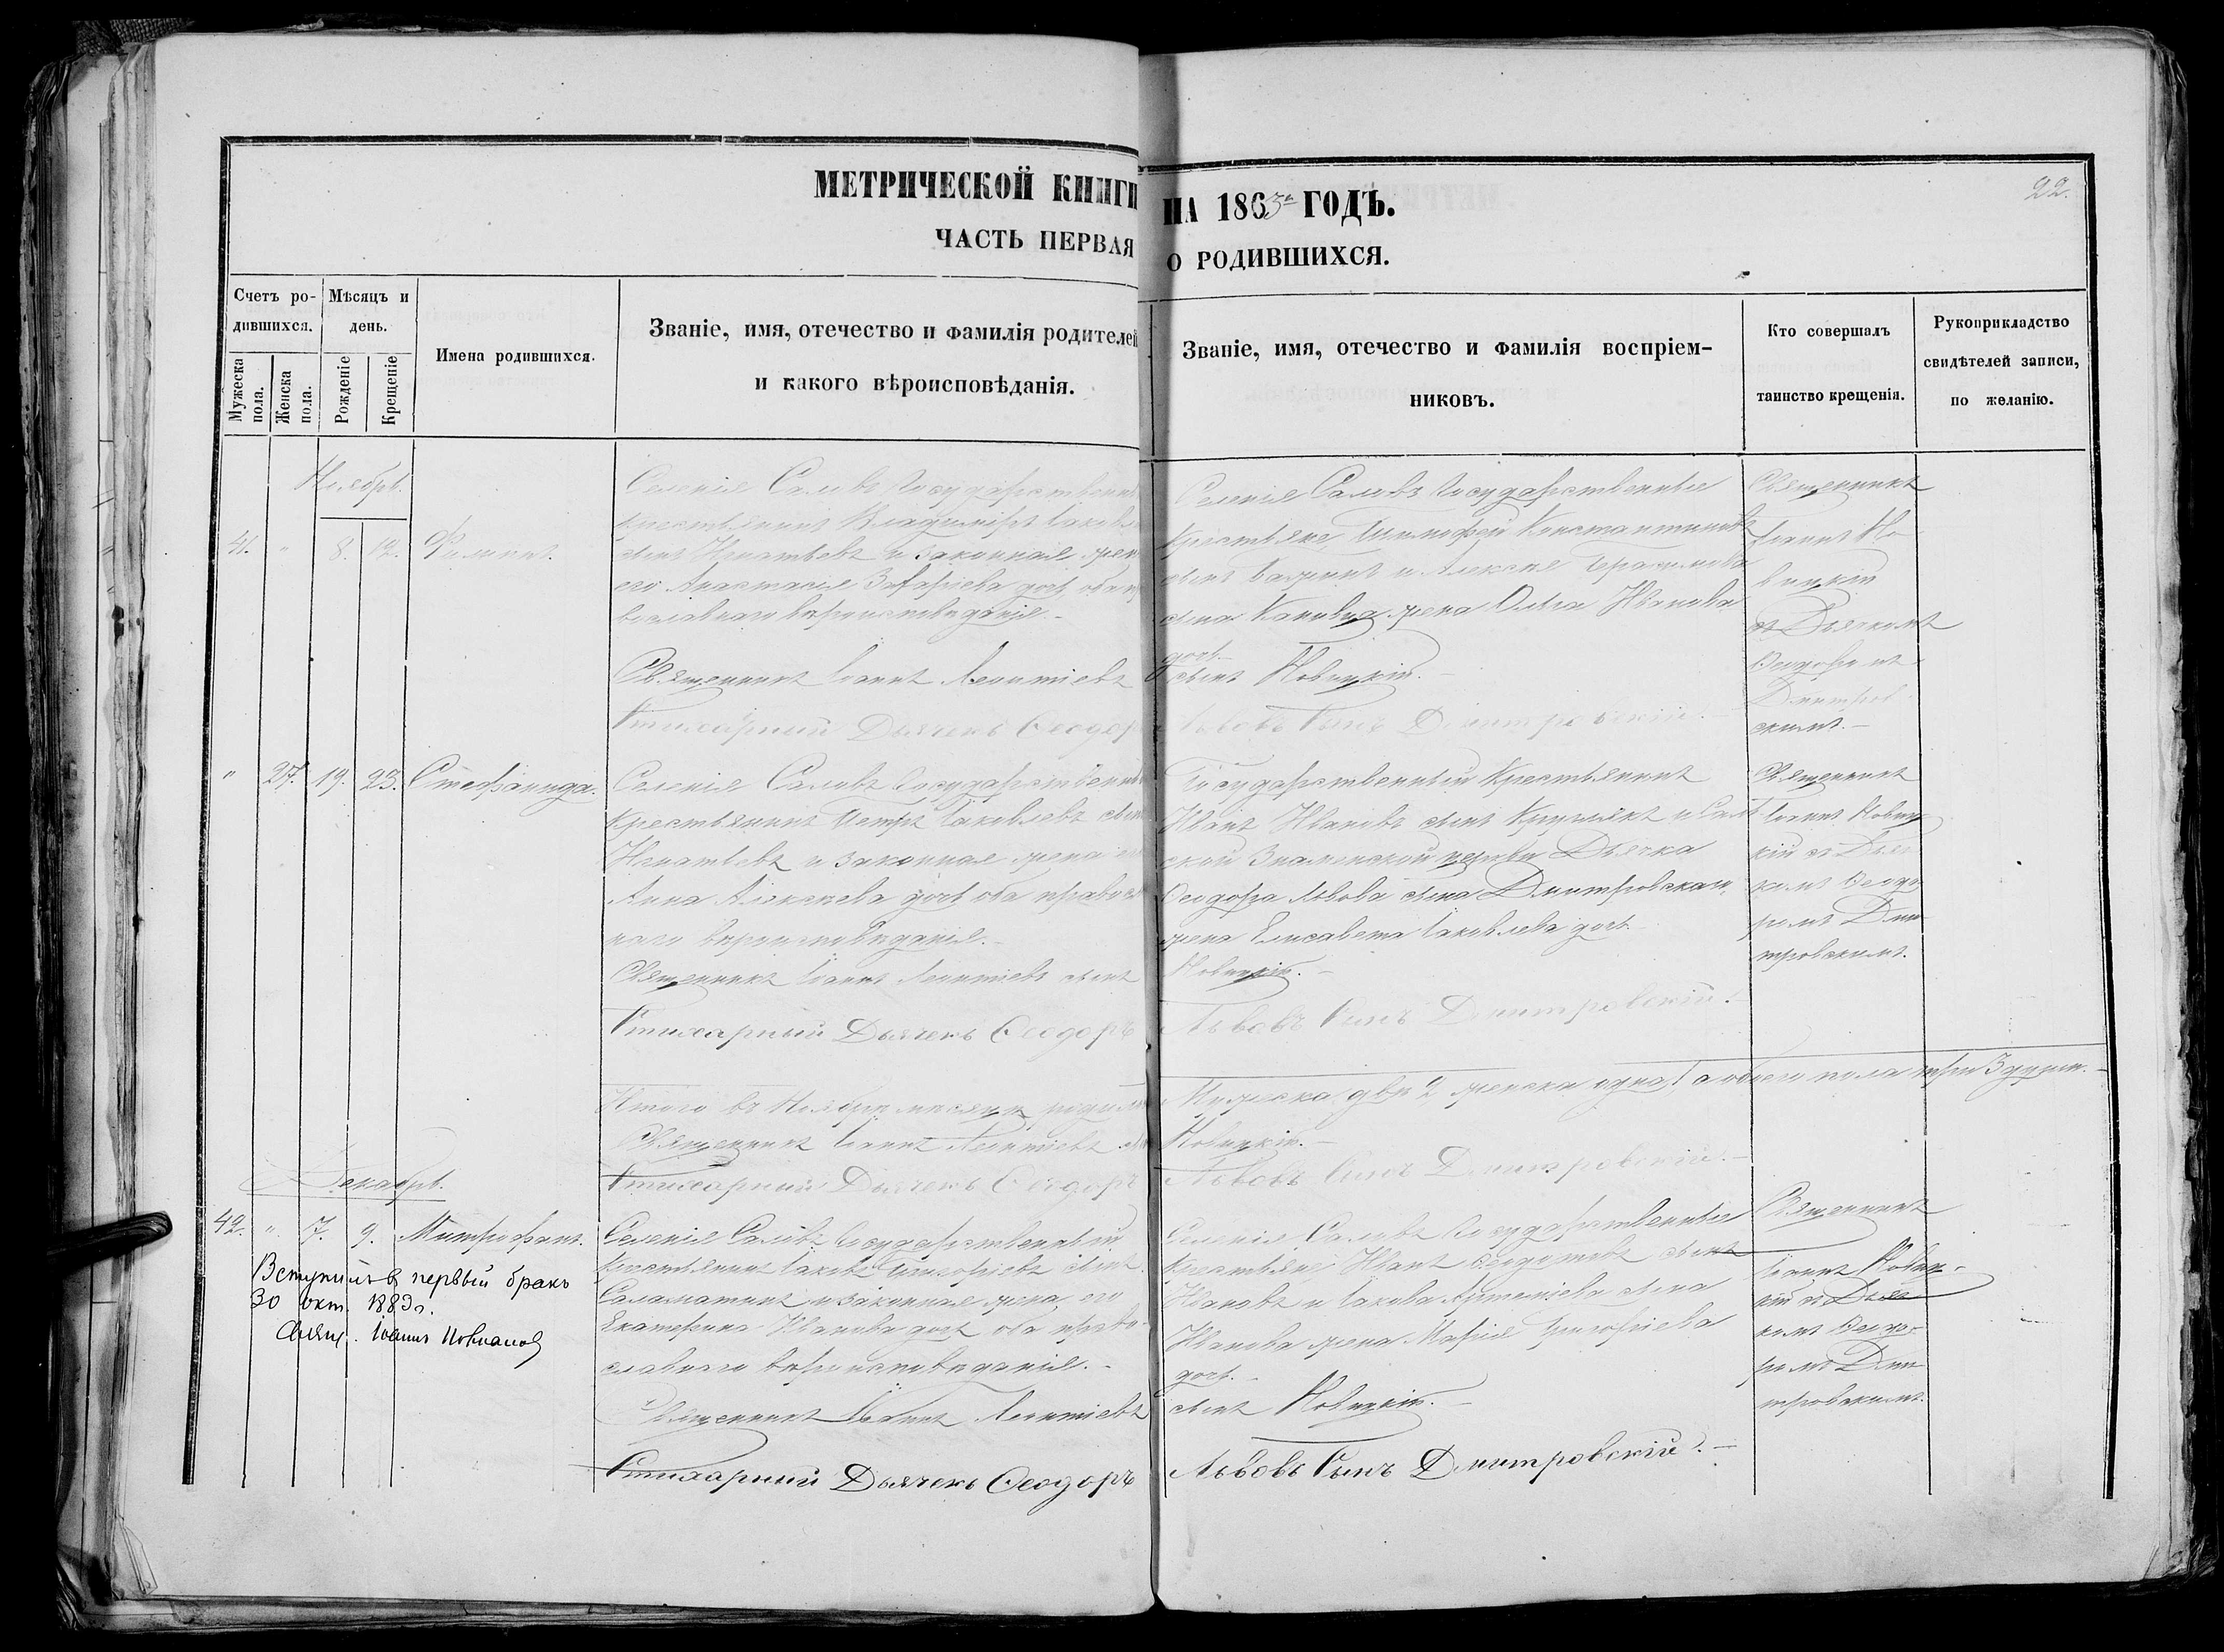 МЕТРИЧЕСКОЙ КНИГИ НА 1863й ГОДЪ.
22.
ЧАСТЬ ПЕРВАЯ О РОДИВШИХСЯ.
Счетъ ро-
дившихся.
Мужеска пола.
Женска пола.
Мѣсяцъ и
день.
Рожденіе
Крещеніе
Имена родившихся.
Званіе, имя, отечество и фамилія родителей
и какого вѣроисповѣданія.
Званіе, имя, отечество и фамилія воспріем-
никовъ.
Кто совершалъ
таинство крещенія.
Рукоприкладство
свидѣтелей записи,
по желанію.
Ноябрь.
41. " 8. 12. Филипъ.
Селенія Саловъ Государственный
крестьянинъ Владиміръ Іаковлевъ
сынъ Игнатьевъ и законная жена
его Анастасія Захаріева дочь оба пра
вославнаго вѣроисповѣданія.-
Священникъ Іоаннъ Леонтіевъ
Стихарный Дьячекъ Ѳеодоръ
Селенія Саловъ Государственные
крестьяне, Тимофей Константиновъ
сынъ и Алексѣя Герасимова
сына жена Ольга Иванова
дочь.
сынъ Новицкій.
Львовъ Сынъ Дмитровскій.
Священникъ
Іоаннъ Но-
вицкій
съ Дьячкомъ
Ѳеодоромъ
Дмитров-
скимъ.-
" 27. 19. 23. Стефанида.
Селенія Саловъ Государственный
крестьянинъ Петръ Іаковлевъ сынъ
Игнатьевъ и законная жена его
Анна Алексѣева дочь оба православ
наго вѣроисповѣданія.-
Священникъ Іоаннъ Леонтіевъ сынъ
Стихарный Дьячекъ Ѳеодоръ
Государственный Крестьянинъ
Иванъ Ивановъ сынъ Кругликъ и Салов
ской Знаменской церкви Дьячка
Ѳеодора Львова сына Дмитровскаго
жена Елисавета Іаковлева дочь.
Новицкій.-
Львовъ Сынъ Дмитровскій.
Священникъ
Іоаннъ Новиц
кій съ Дьяч
комъ Ѳеодо
ромъ Дми
тровскимъ.
Итого въ Ноябрѣ мѣсяцѣ родилось
Мужеска два 2 женска одна 1 а обоего пола три 3 души.-
Священникъ Іоаннъ Леонтіевъ сынъ
Новицкій.-
Стихарный Дьячекъ Ѳеодоръ
Львовъ Сынъ Дмитровскій.-
Декабрь.
42. " 7. 9. Митрофанъ.
Вступилъ въ первый бракъ
30 окт. 1883 г.
Свящ. Іоаннъ
Селенія Саловъ Государственный
Крестьянинъ Іаковъ Григоріевъ сынъ
Саламатинъ и законная жена его
Екатерина Иванова дочь оба право-
славнаго вѣроисповѣданія.-
Священникъ Іоаннъ Леонтіевъ
Стихарный Дьячекъ Ѳеодоръ
Селенія Саловъ Государственные
Крестьяне, Иванъ Ѳеодотовъ сынъ
Ивановъ и Іакова Артеміева сына
Иванова жена Марія Григоріева
дочь.-
сынъ Новицкій.-
Львовъ Сынъ Дмитровскій.-
Священникъ
Іоаннъ Новиц-
кій съ Дьяч
комъ Ѳеодо-
ромъ Дми
тровскимъ.